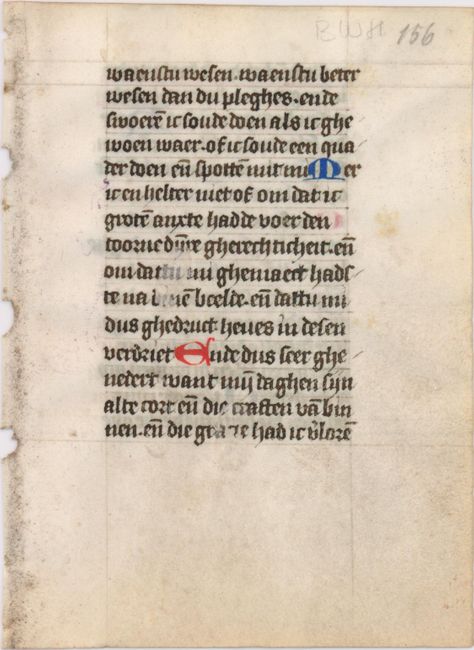 BWH 156
waenstu wesen · waenstu beter
wesen dan du pleghes · ende
swoerē ic soude doen als ic ghe
woen waer · of ic soude een qua
der doen eñ spottē mit mi Mer
ic en helter niet of om dat ic
grotē anxte hadde voer den
toorne dijre gherechticheit · eñ
om dattu mi ghemaect hads
te na beelde · eñ dattu mi
dus ghedruct heues in desen
verdriet Ende dus seer ghe
nedert want mijn daghen sijn
alte cort eñ die craften vā bin
nen · eñ die gracie had ic v̄lorē